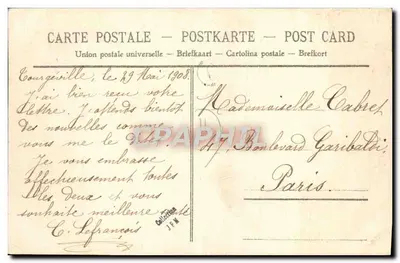 CARTE POSTALE – POSTKARTE – POST CARD
Union postale universelle – Briefkaart – Cartolina postale – Brefkort
Tourgéville, le 29 Mai 1908.
J'ai bien reçu votre
lettre. J'attends bientôt
des nouvelles comme
vous me le dites.
Je vous embrasse
affectueusement toutes
les deux et vous
souhaite meilleure santé
C. Lefrancois
Mademoiselle Cabret
47, Boulevard Garibaldi.
Paris.
CPAPHIL
Collection
J P M